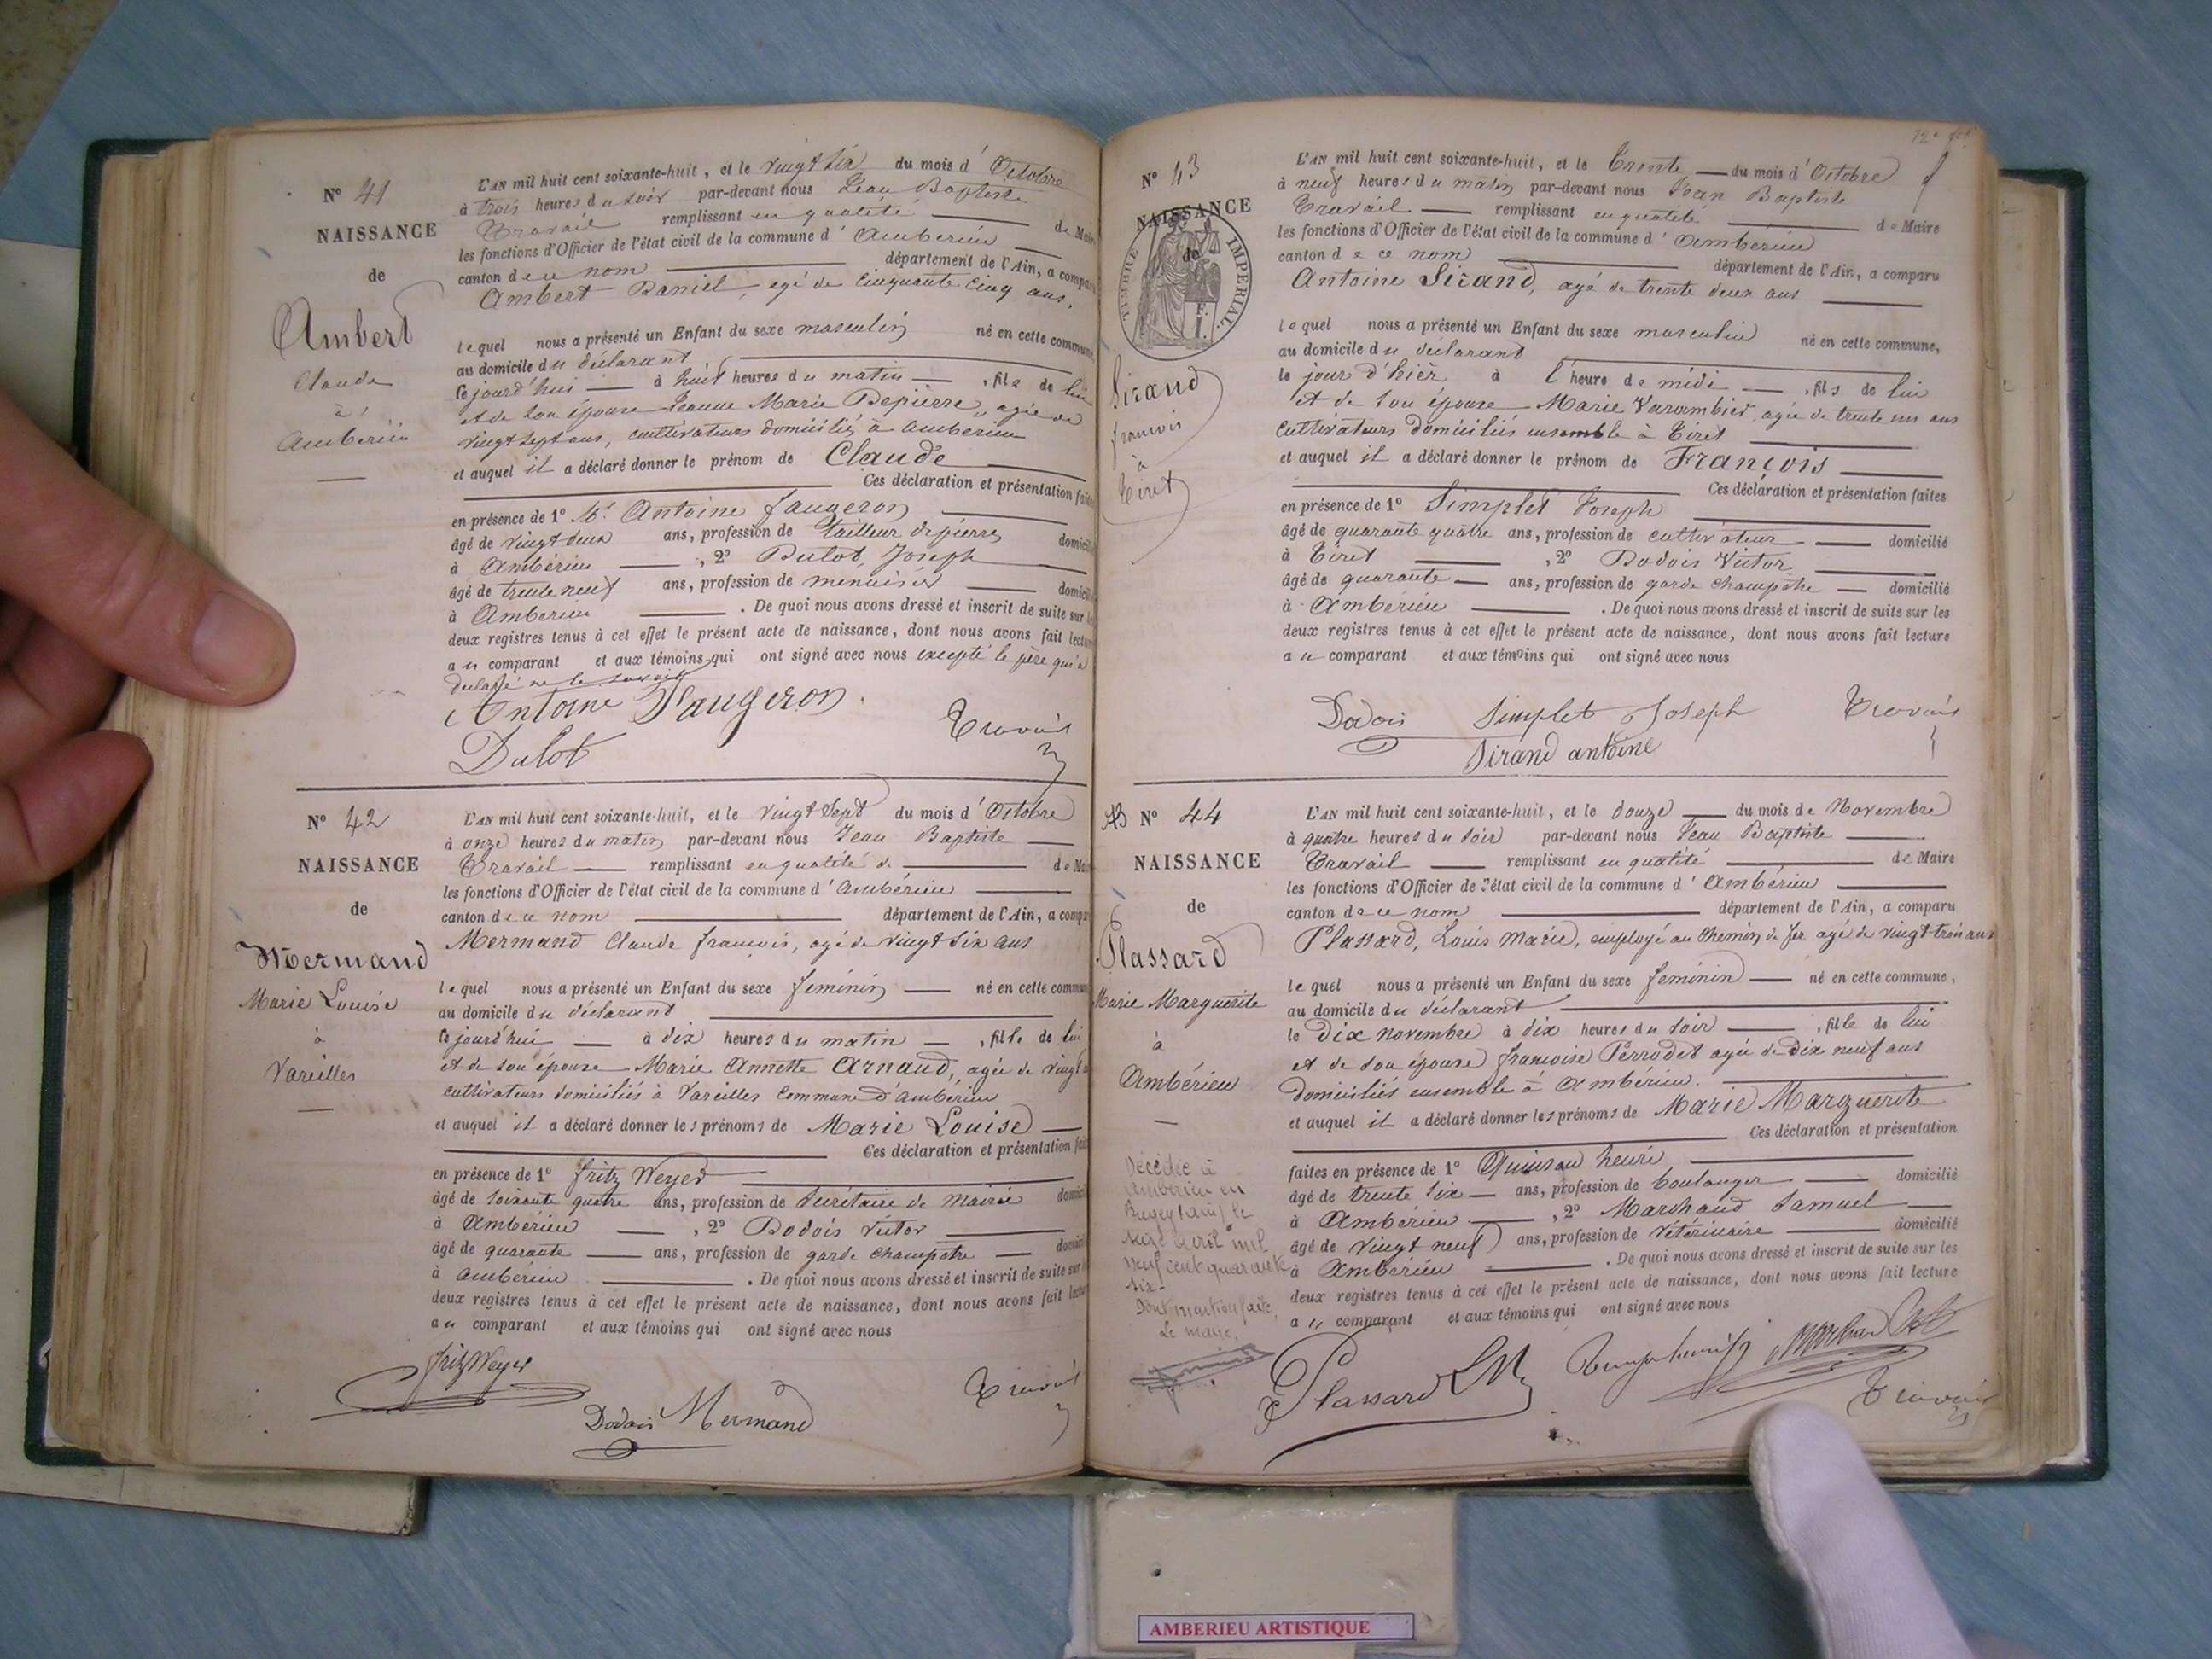 N° 41
NAISSANCE
de
Ambert
Claude
à
Ambérieu
L'AN mil huit cent soixante-huit, et le vingt six du mois d'Octobre
à trois heures du soir par-devant nous Jean Baptiste
Travail remplissant en qualité de Maire
les fonctions d'Officier de l'état civil de la commune d'Ambérieu
canton de ce nom département de l'Ain, a comparu
Ambert Daniel, agé de cinquante cinq ans,
lequel nous a présenté un Enfant du sexe masculin né en cette commune
au domicile du déclarant
cejourd'hui à huit heures du matin, fils de lui
et de son épouse Jeanne Marie Depierre, agée de
vingt sept ans, cultivateurs domiciliés à Ambérieu
et auquel il a déclaré donner le prénom de Claude
Ces déclaration et présentation faites
en présence de 1° Mr. Antoine Faugeron
âgé de vingt deux ans, profession de tailleur de pierres domicilié
à Ambérieu, 2° Dulot, Joseph
âgé de trente neuf ans, profession de menuisier domicilié
à Ambérieu. De quoi nous avons dressé et inscrit de suite sur les
deux registres tenus à cet effet le présent acte de naissance, dont nous avons fait lecture
au comparant et aux témoins qui ont signé avec nous excepté le père qui a
déclaré ne le savoir
Antoine Faugeron
Travail
Dulot
N° 42
NAISSANCE
de
Mermand
Marie Louise
à
Vareilles
L'AN mil huit cent soixante-huit, et le vingt sept du mois d'Octobre
à onze heures du matin par-devant nous Jean Baptiste
Travail remplissant en qualité de Maire
les fonctions d'Officier de l'état civil de la commune d'Ambérieu
canton de ce nom département de l'Ain, a comparu
Mermand Claude françois, agé de vingt six ans
lequel nous a présenté un Enfant du sexe féminin né en cette commune
au domicile du déclarant
cejourd'hui à dix heures du matin, fille de lui
et de son épouse Marie Annette Arnaud, agée de vingt
cultivateurs domiciliés à Vareilles Commune d'Ambérieu
et auquel il a déclaré donner les prénoms de Marie Louise
Ces déclaration et présentation faites
en présence de 1° Fritz Weyer
âgé de soixante quatre ans, profession de secrétaire de Mairie domicilié
à Ambérieu, 2° Dodois Victor
âgé de quarante ans, profession de garde champêtre domicilié
à Ambérieu. De quoi nous avons dressé et inscrit de suite sur les
deux registres tenus à cet effet le présent acte de naissance, dont nous avons fait lecture
au comparant et aux témoins qui ont signé avec nous
Fritz Weyer
Dodois Mermand
Travail
N° 43
NAISSANCE
de
TIMBRE IMPERIAL
Sirand
françois
à
Tiret
L'AN mil huit cent soixante-huit, et le Trente du mois d'Octobre
à neuf heures du matin par-devant nous Jean Baptiste
Travail remplissant en qualité de Maire
les fonctions d'Officier de l'état civil de la commune d'Ambérieu
canton de ce nom département de l'Ain, a comparu
Antoine Sirand, agé de trente deux ans
lequel nous a présenté un Enfant du sexe masculin né en cette commune,
au domicile du déclarant
le jour d'hier à l'heure de midi, fils de lui
et de son épouse Marie Varambier agée de trente un ans
Cultivateurs domiciliés ensemble à Tiret
et auquel il a déclaré donner le prénom de François
Ces déclaration et présentation faites
en présence de 1° Simplet Joseph
âgé de quarante quatre ans, profession de cultivateur domicilié
à Tiret, 2° Dodois Victor
âgé de quarante ans, profession de garde champêtre domicilié
à Ambérieu. De quoi nous avons dressé et inscrit de suite sur les
deux registres tenus à cet effet le présent acte de naissance, dont nous avons fait lecture
au comparant et aux témoins qui ont signé avec nous
Dodois Simplet Joseph Travail
Sirand antoine
N° 44
NAISSANCE
de
Plassard
Marie Marguerite
à
Ambérieu
Décédée à
Ambérieu en
Bugey (Ain) le
avril mil
neuf cent quarante
six
Dont mention faite,
Le maire,
L'AN mil huit cent soixante-huit, et le douze du mois de Novembre
à quatre heures du soir par-devant nous Jean Baptiste
Travail remplissant en qualité de Maire
les fonctions d'Officier de l'état civil de la commune d'Ambérieu
canton de ce nom département de l'Ain, a comparu
Plassard, Louis Marie, employé au Chemin de fer agé de vingt trois ans
lequel nous a présenté un Enfant du sexe féminin né en cette commune,
au domicile du déclarant
le Dix novembre à dix heures du soir, fille de lui
et de son épouse françoise Perrodet agée de Dix neuf ans
domiciliés ensemble à Ambérieu.
et auquel il a déclaré donner les prénoms de Marie Marguerite
Ces déclaration et présentation
faites en présence de 1° henri
âgé de trente six ans, profession de boulanger domicilié
à Ambérieu, 2° Marchand Samuel
âgé de vingt neuf ans, profession de vétérinaire domicilié
à Ambérieu. De quoi nous avons dressé et inscrit de suite sur les
deux registres tenus à cet effet le présent acte de naissance, dont nous avons fait lecture
au comparant et aux témoins qui ont signé avec nous
Plassard LM
Travail
AMBERIEU ARTISTIQUE